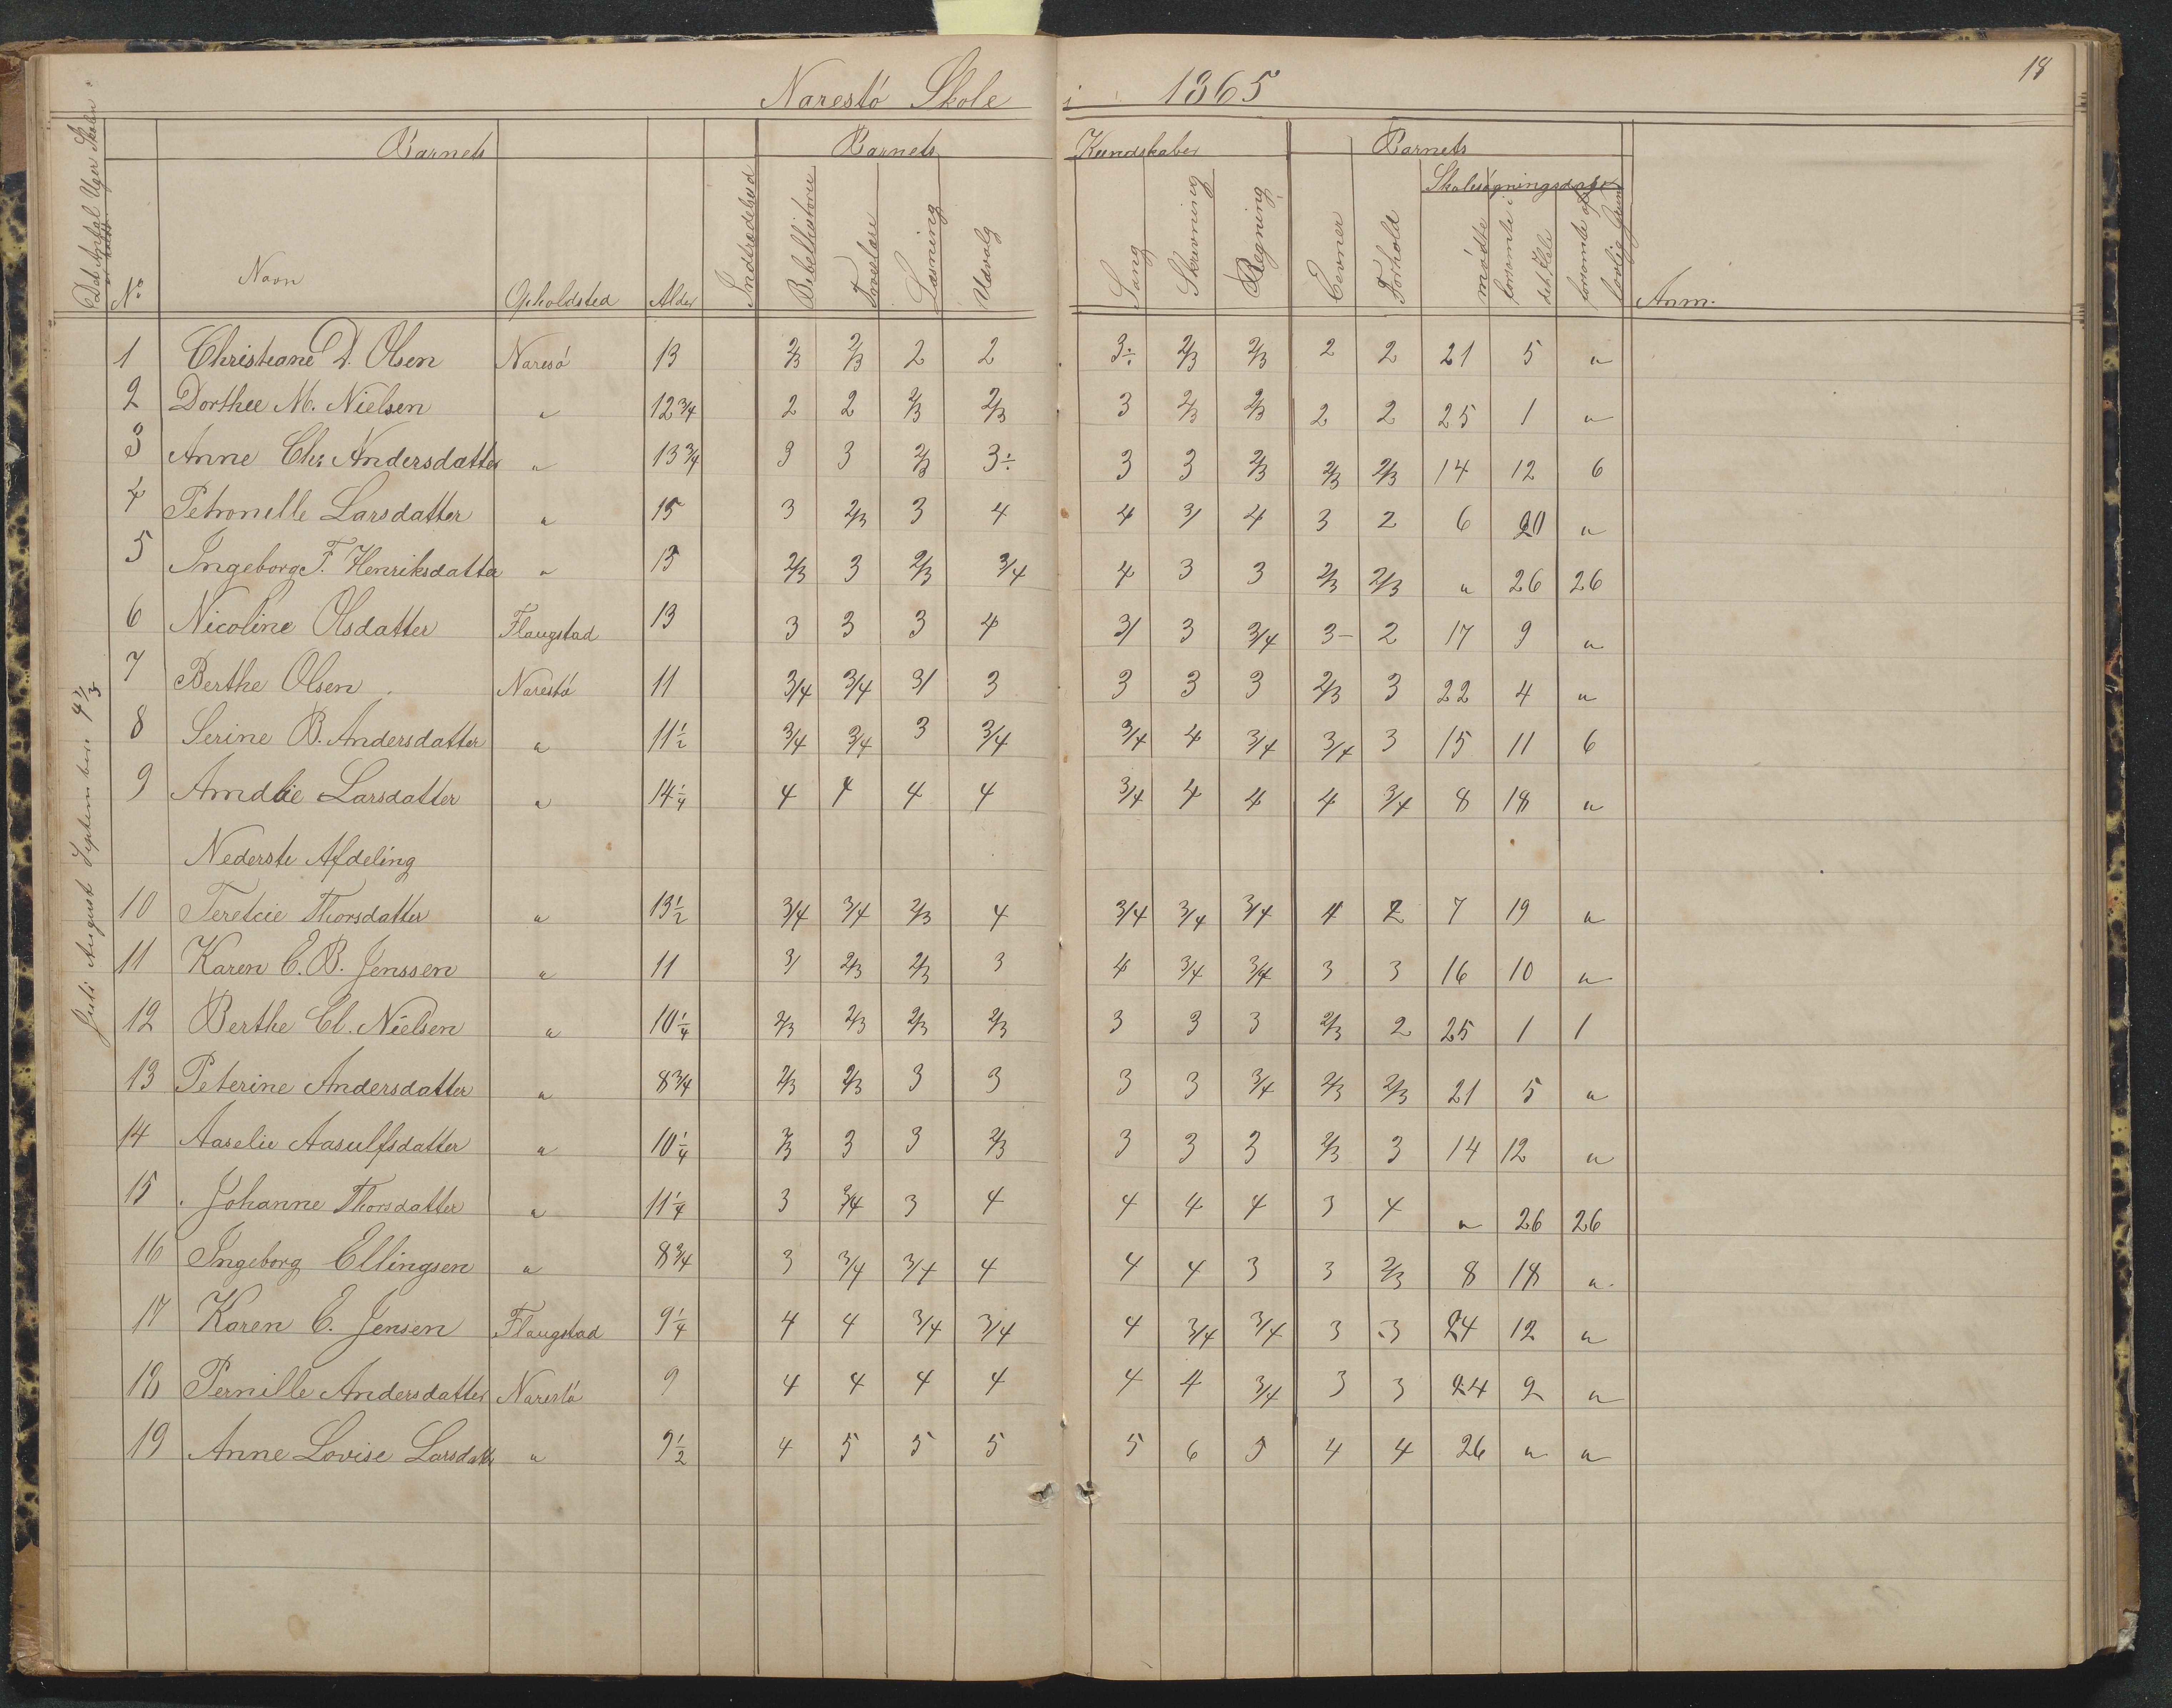 18
Narestö Skole i 1865
Det Antal Uger Skolen er holdt
Barnets Barnets Kundskaber Barnets
Skolesøgningsdage
No Navn Opholdsted Alder Indtrædelsed Bibelhistorie Troeslære Læsning Udvalg Sang Skrivning Regning Evner Forhold mødte forsømte i det Hele forsømte af lovlig Grund Anm.
Juli August September 4 1/3
1 Christiane D. Olsen Naresö 13 2/3 2/3 2 2 3÷ 2/3 2/3 2 2 21 5 "
2 Dorthee M. Nielsen " 12 3/4 2 2 2/3 2/3 3 2/3 2/3 2 2 25 1 "
3 Anne Chr. Andersdatter " 13 3/4 3 3 2/3 3÷ 3 3 2/3 2/3 2/3 14 12 6
4 Petronelle Larsdatter " 15 3 2/3 3 4 4 3/ 4 3 2 6 20 "
5 Ingeborg F. Henriksdatter " 13 2/3 3 2/3 3/4 4 3 3 2/3 2/3 " 26 26
6 Nicoline Olsdatter Flaugstad 13 3 3 3 4 3/ 3 3/4 3- 2 17 9 "
7 Berthe Olsen Narestö 11 3/4 3/4 3/ 3 3 3 3 2/3 3 22 4 "
8 Serine B. Andersdatter " 11 1/2 3/4 3/4 3 3/4 3/4 4 3/4 3/4 3 15 11 6
9 Amalie Larsdatter " 14 1/4 4 4 4 4 3/4 4 4 4 3/4 8 18 "
Nederste Afdeling
10 Teretcie Thorsdatter " 13 1/2 3/4 3/4 2/3 4 3/4 3/4 3/4 4 2 7 19 "
11 Karen C. B. Jenssen " 11 3/ 2/3 2/3 3 4 3/4 3/4 3 3 16 10 "
12 Berthe El. Nielsen " 10 1/4 2/3 2/3 2/3 2/3 3 3 3 2/3 2 25 1 1
13 Peterine Andersdatter " 8 3/4 2/3 2/3 3 3 3 3 3/4 2/3 2/3 21 5 "
14 Aaselie Aasulfsdatter " 10 1/4 2/3 3 3 2/3 3 3 3 2/3 3 14 12 "
15 Johanne Thorsdatter " 11 1/4 3 3/4 3 4 4 4 4 3 4 " 26 26
16 Ingeborg Ellingsen " 8 3/4 3 3/4 3/4 4 4 4 3 3 2/3 8 18 "
17 Karen C. Jensen Flaugstad 9 1/4 4 4 3/4 3/4 4 3/4 3/4 3 3 24 12 "
18 Pernille Andersdatter Narestö 9 4 4 4 4 4 4 3/4 3 3 24 2 "
19 Anne Lovise Larsdatter " 9 1/2 4 5 5 5 5 6 5 4 4 26 " "